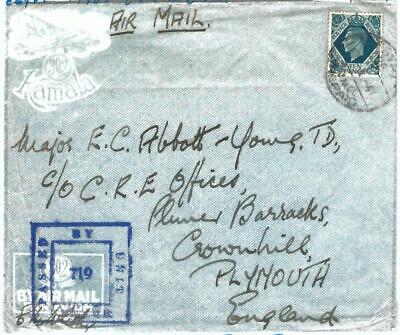 AIR MAIL.
Kamala
Major E.C. Abbott-Young. T.D.,
C/O C.R.E Offices,
Plumer Barracks,
Crownhill,
PLYMOUTH
England
PASSED BY
UNIT
719
BY AIR MAIL